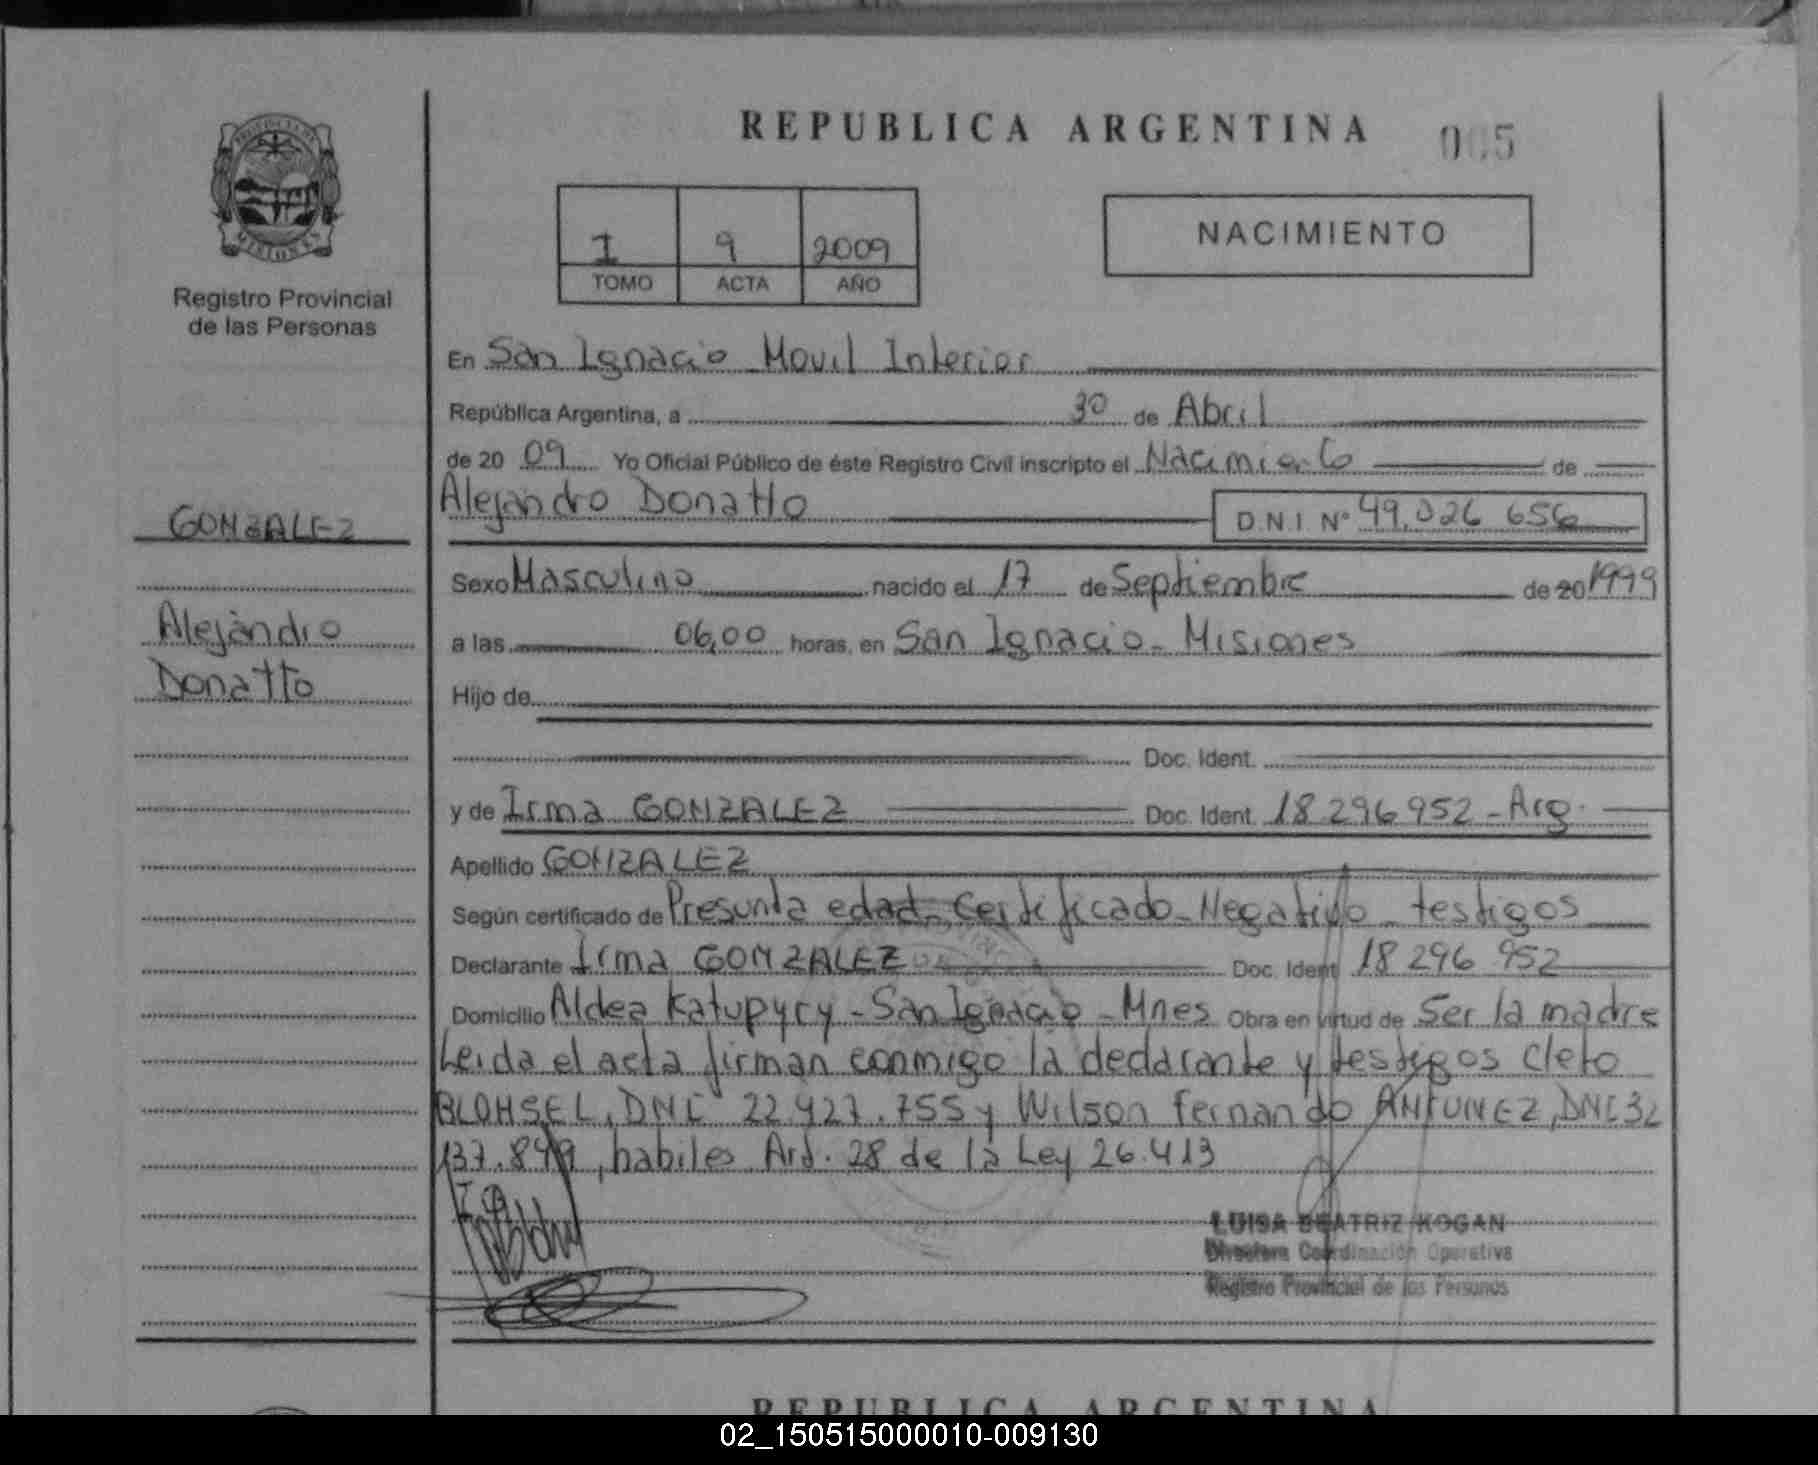 REPUBLICA ARGENTINA
PROVINCIA DE
MISIONES
Registro Provincial
de las Personas
I 9 2009
TOMO ACTA AÑO
NACIMIENTO
En San Ignacio Movil Interior
República Argentina, a 30 de Abril
de 20 09 Yo Oficial Público de éste Registro Civil inscripto el Nacimiento de
Alejandro Donatto
D.N.I. Nº 49.026 656
GONZALEZ
Alejandro
Donatto
Sexo Masculino nacido el 17 de Septiembre de 20 1999
a las 06,00 horas, en San Ignacio - Misiones
Hijo de
Doc. Ident.
y de Irma GONZALEZ Doc. Ident. 18 296 952 - Arg.
Apellido GONZALEZ
Según certificado de Presunta edad - Certificado - Negativo - testigos
Declarante Irma GONZALEZ Doc. Ident 18 296 952
Domicilio Aldea Katupyry - San Ignacio - Mnes Obra en virtud de Ser la madre
Leida el acta firman conmigo la declarante y testigos Cleto
DNI 22.427.755 y Wilson Fernando ANTUNEZ, DNI 32
137.849, habiles Art. 28 de la Ley 26.413
LUISA BEATRIZ KOGAN
Directora Coordinación Operativa
Registro Provincial de las Personas
REPUBLICA ARGENTINA
02_150515000010-009130